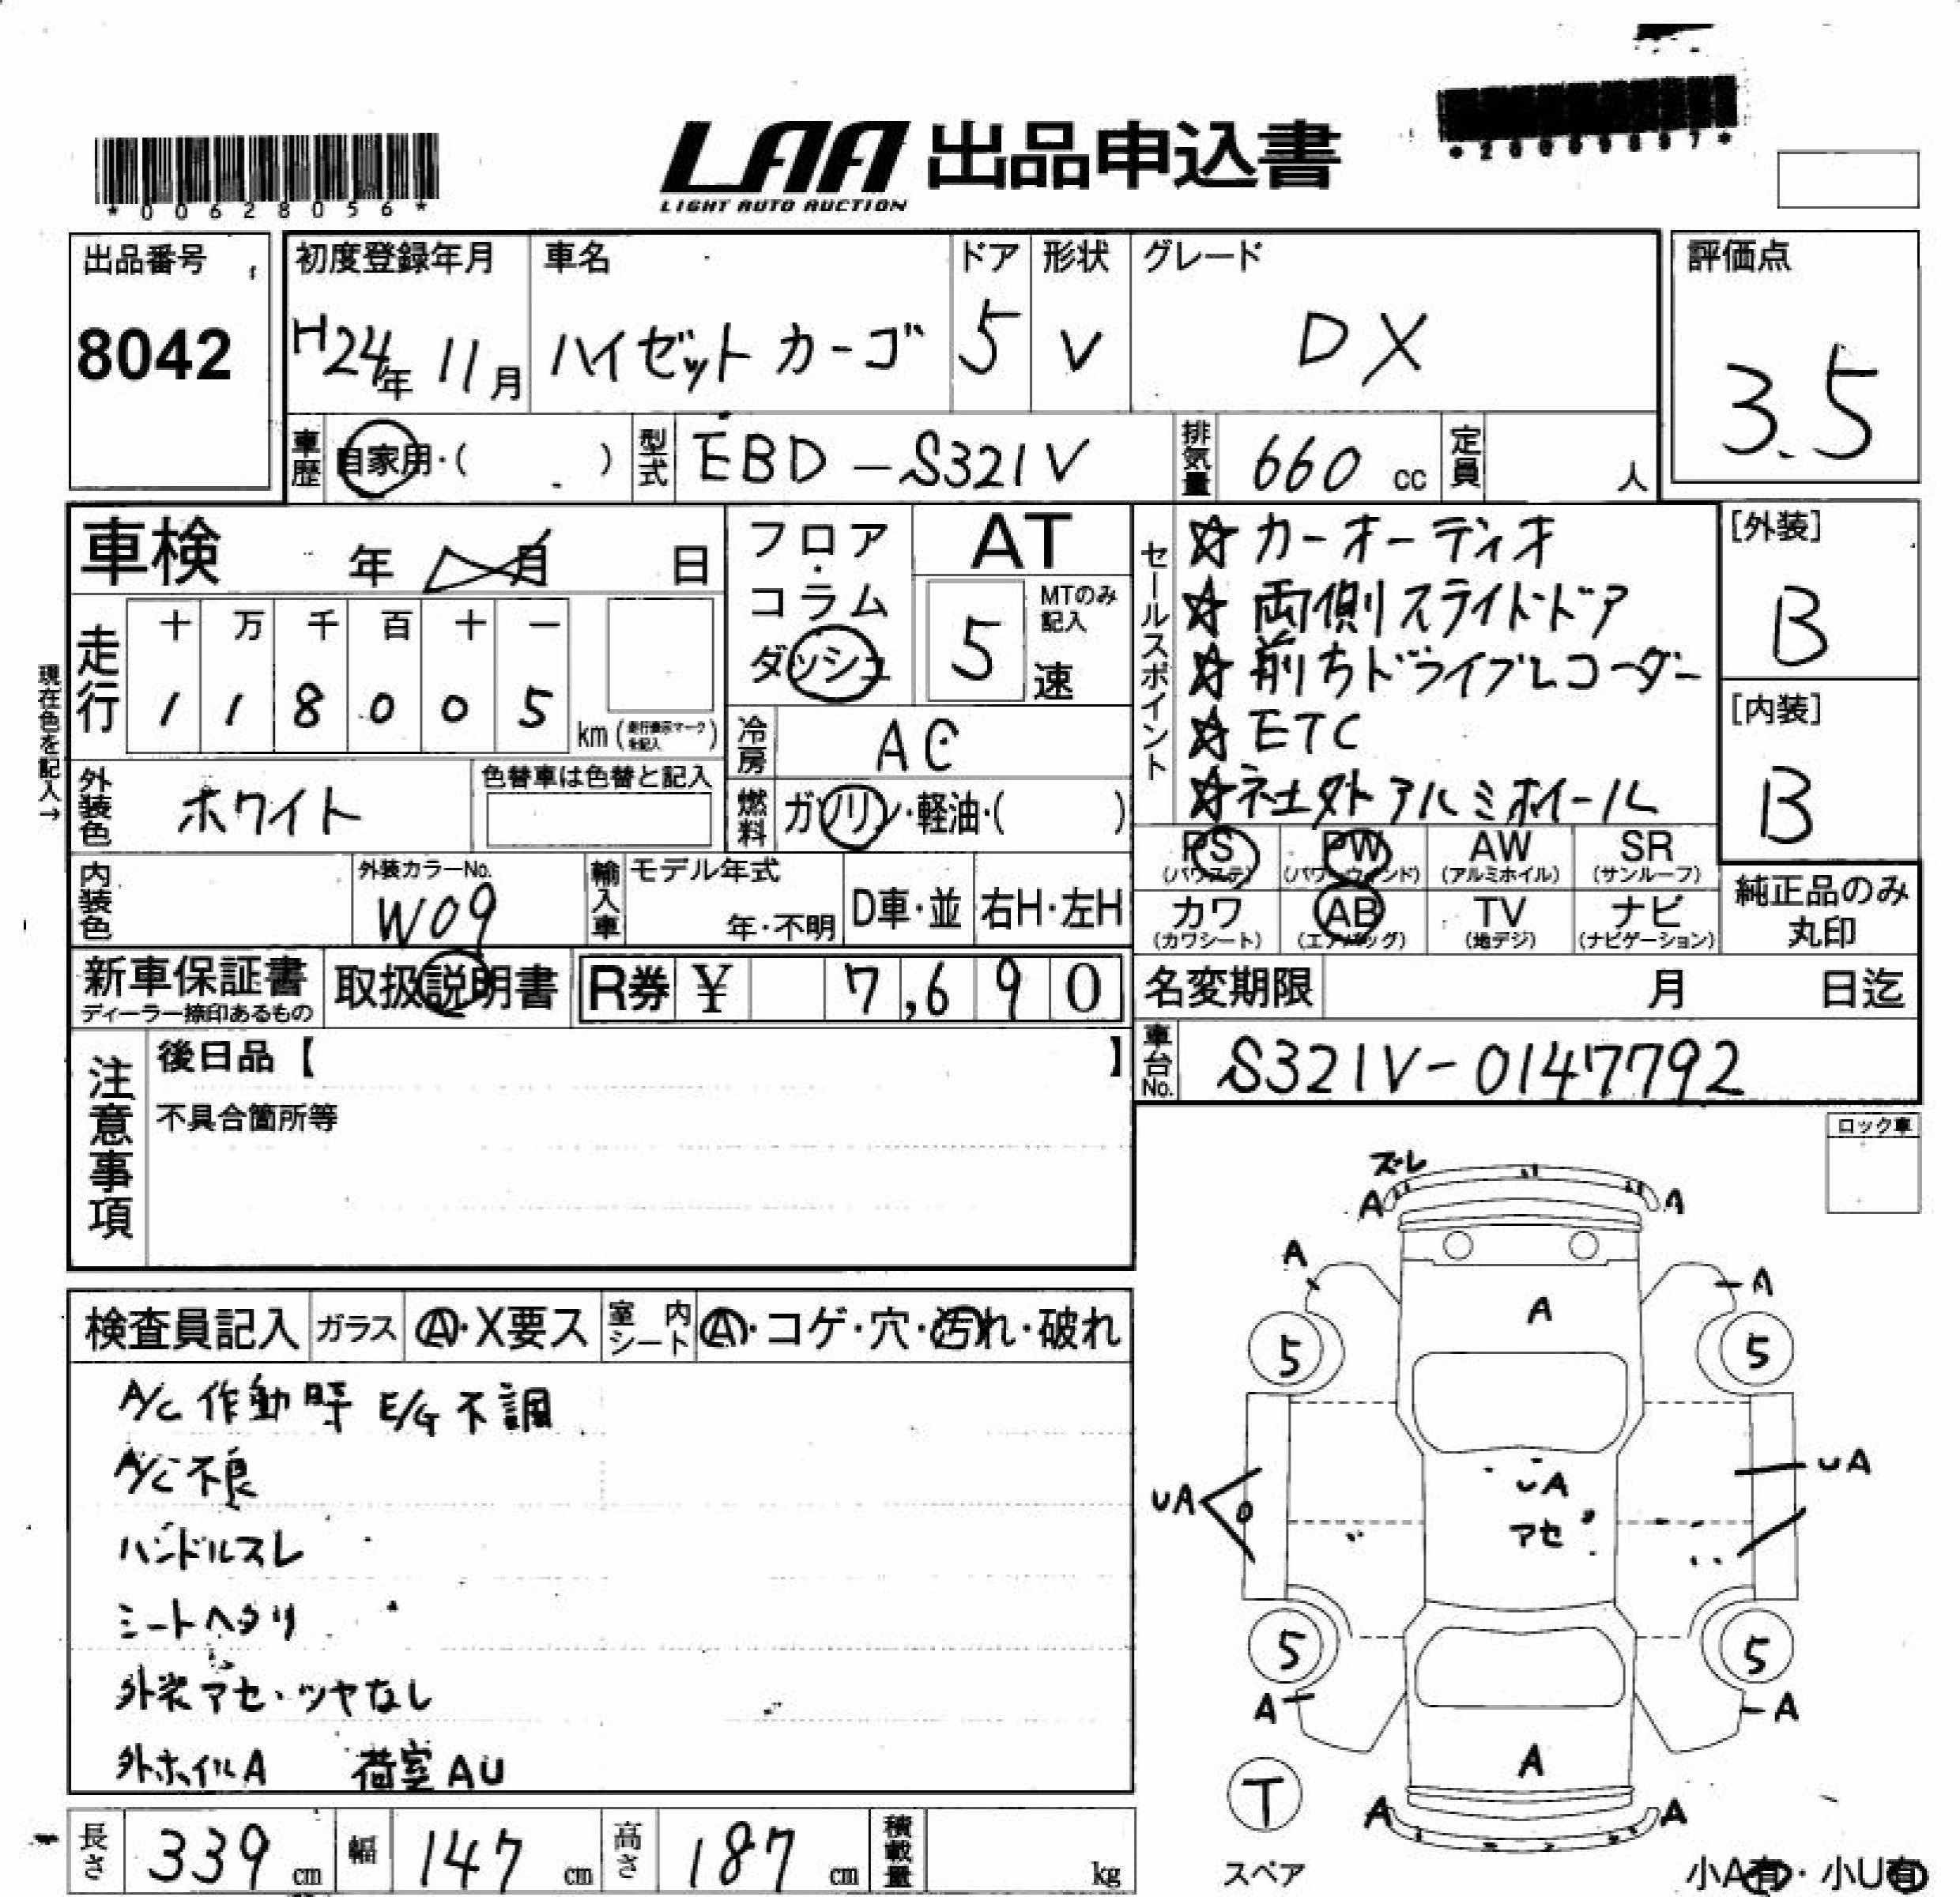 *00628056*
LAA 出品申込書
LIGHT AUTO AUCTION
出品番号
8042
初度登録年月
H24年 11月
車名
ハイゼット カーゴ
ドア
5
形状
V
グレード
DX
評価点
3.5
車歴 自家用・( )
型式 EBD-S321V
排気量 660 cc
定員 人
車検 年 月 日
フロア・コラム ダッシュ
AT
5 速
MTのみ記入
セールスポイント
☆ カーオーディオ
☆ 両側スライドドア
☆ 前方ドライブレコーダー
☆ ETC
☆ 社外アルミホイール
[外装]
B
[内装]
B
現在色を記入→
走行
十 万 千 百 十 一
1 1 8 0 0 5 km (走行表示マークを記入)
冷房 AC
外装色 ホワイト
色替車は色替と記入
燃料 ガソリン・軽油・( )
PS (パワステ)
PW (パワーウィンド)
AW (アルミホイル)
SR (サンルーフ)
カワ (カワシート)
AB (エアバッグ)
TV (地デジ)
ナビ (ナビゲーション)
純正品のみ丸印
内装色
外装カラーNo.
W09
輸入車
モデル年式
年・不明
D車・並
右H・左H
新車保証書
ディーラー捺印あるもの
取扱説明書
R券 ¥ 7,690
名変期限 月 日迄
車台No. S321V-0147792
注意事項
後日品【 】
不具合箇所等
ロック車
検査員記入
ガラス A・X要ス
室内シート A・コゲ・穴・汚れ・破れ
A/C 作動時 E/G 不調
A/C 不良
ハンドルスレ
シートヘタリ
外装アセ・ツヤなし
外ホイルA 荷室AU
ズレ
A A
A A
A
5 5
UA UA
UA
アセ
5 5
A A
A
T
A A
スペア
小A有・小U有
長さ 339 cm
幅 147 cm
高さ 187 cm
積載量 kg